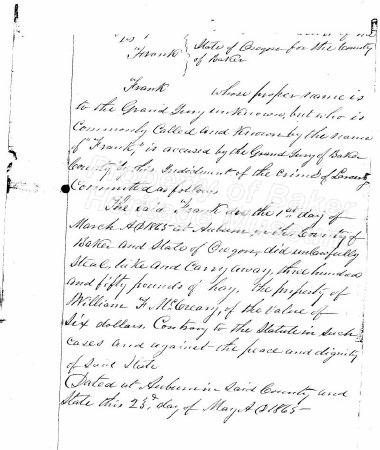 vs
Frank
State of Oregon for the County
of Baker
Frank whose proper name is
to the Grand Jury unknown, but who is
Commonly Called and Known by the name
of "Frank," is accused by the Grand Jury of Baker
County by this Indictment of the crime of Larceny
Committed as follows
The said Frank on the 1st day of
March AD 1865 at Auburn in the County of
Baker and State of Oregon, did unlawfully
Steal, take and Carry away, three hundred
and fifty pounds of hay, the property of
William F. McCreary, of the value of
Six dollars. Contrary to the Statute in such
cases and against the peace and dignity
of Said State
Dated at Auburn in Said County and
State this 23d, day of May AD 1865—